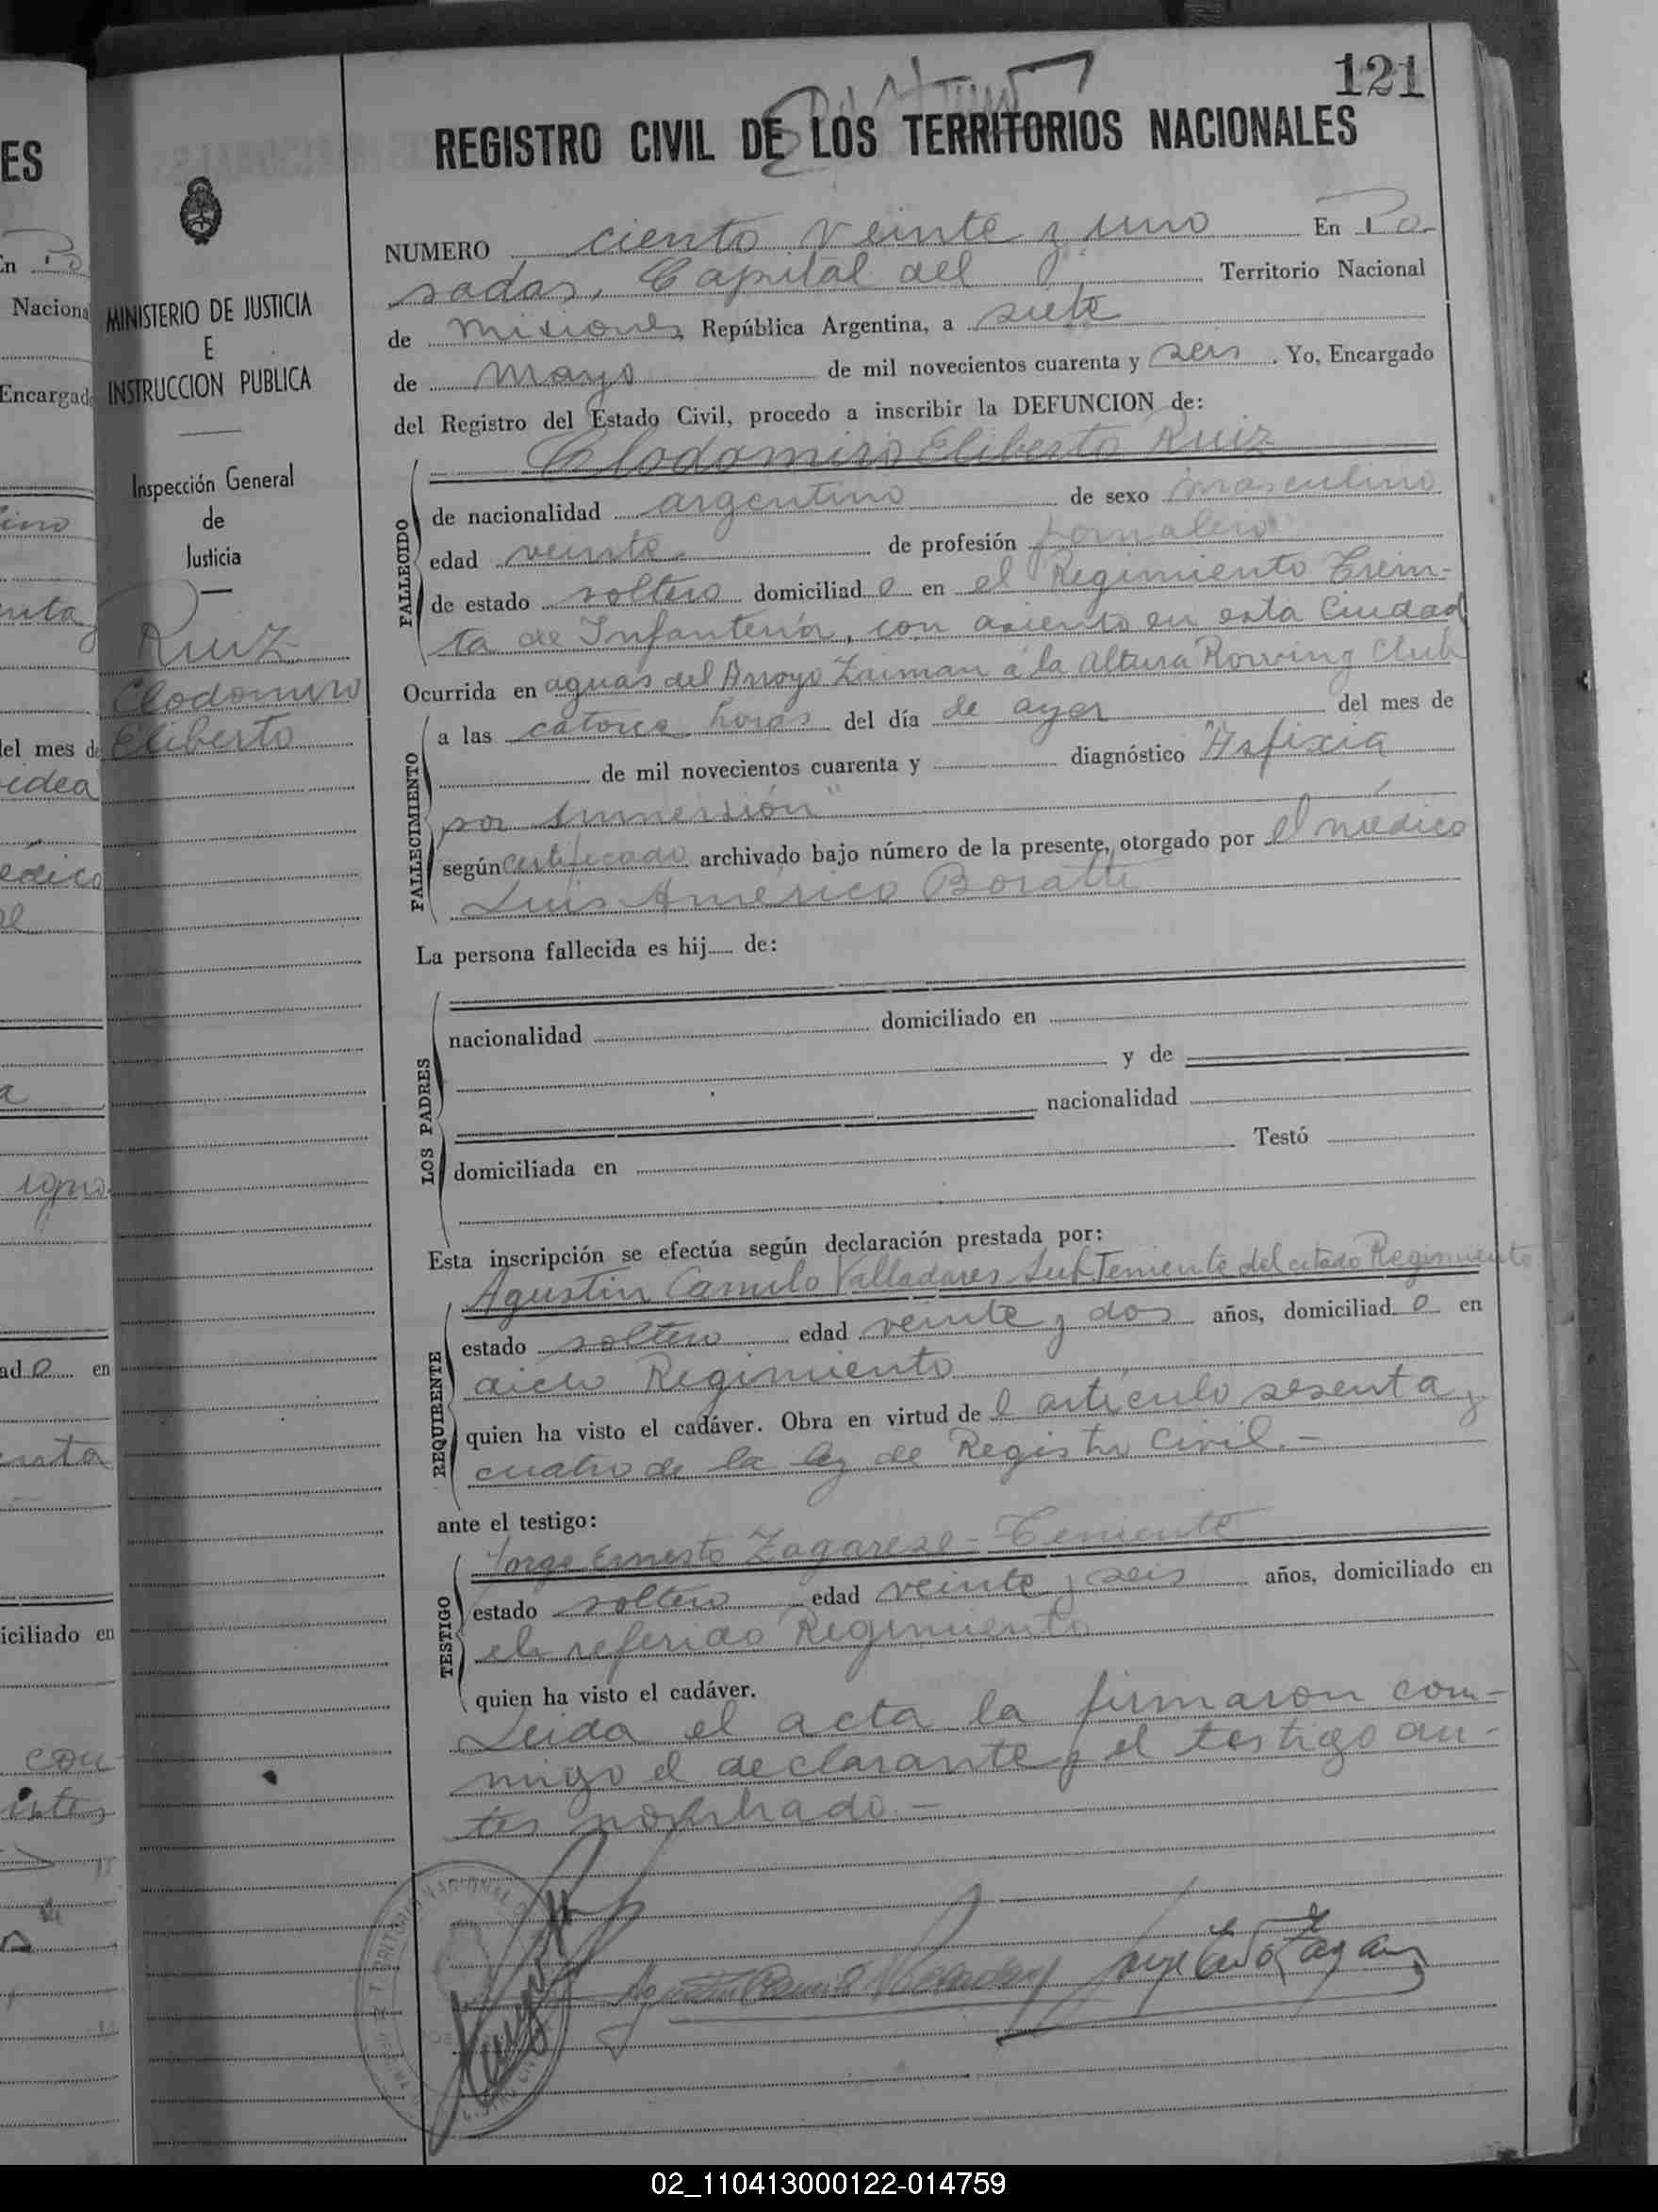 121
REGISTRO CIVIL DE LOS TERRITORIOS NACIONALES
NUMERO ciento veinte y uno En Po-
sadas, Capital del Territorio Nacional
de Misiones, República Argentina, a siete
de mayo de mil novecientos cuarenta y seis. Yo, Encargado
del Registro del Estado Civil, procedo a inscribir la DEFUNCION de:
Clodomiro Eliberto Ruiz
FALLECIDO
de nacionalidad argentino de sexo masculino
edad veinte de profesión jornalero
de estado soltero domiciliado en el Regimiento Trein-
ta de Infantería, con asiento en esta Ciudad
Ocurrida en aguas del Arroyo Zaiman a la altura Rowing Club
FALLECIMIENTO
a las catorce horas del día de ayer del mes de
de mil novecientos cuarenta y diagnóstico "Asfixia
por inmersión"
según certificado archivado bajo número de la presente, otorgado por el médico
Luis Américo Boratti
La persona fallecida es hij de:
LOS PADRES
nacionalidad domiciliado en
y de
nacionalidad
domiciliada en Testó
Esta inscripción se efectúa según declaración prestada por:
Agustin Camilo Valladares Sub Teniente del citado Regimiento
REQUIRENTE
estado soltero edad veinte y dos años, domiciliado en
dicho Regimiento
quien ha visto el cadáver. Obra en virtud del artículo sesenta y
cuatro de la ley de Registro Civil.-
ante el testigo:
Jorge Ernesto Zagarese - Teniente
TESTIGO
estado soltero edad veinte y seis años, domiciliado en
el referido Regimiento
quien ha visto el cadáver.
Leida el acta la firmaron con-
migo el declarante y el testigo an-
tes nombrado.-
Agustin Camilo Valladares
MINISTERIO DE JUSTICIA
E
INSTRUCCION PUBLICA
Inspección General
de
Justicia
Ruiz
Clodomiro
Eliberto
ES
En Po
Nacional
Encargado
del mes de
ad o en
iciliado en
con
02_110413000122-014759